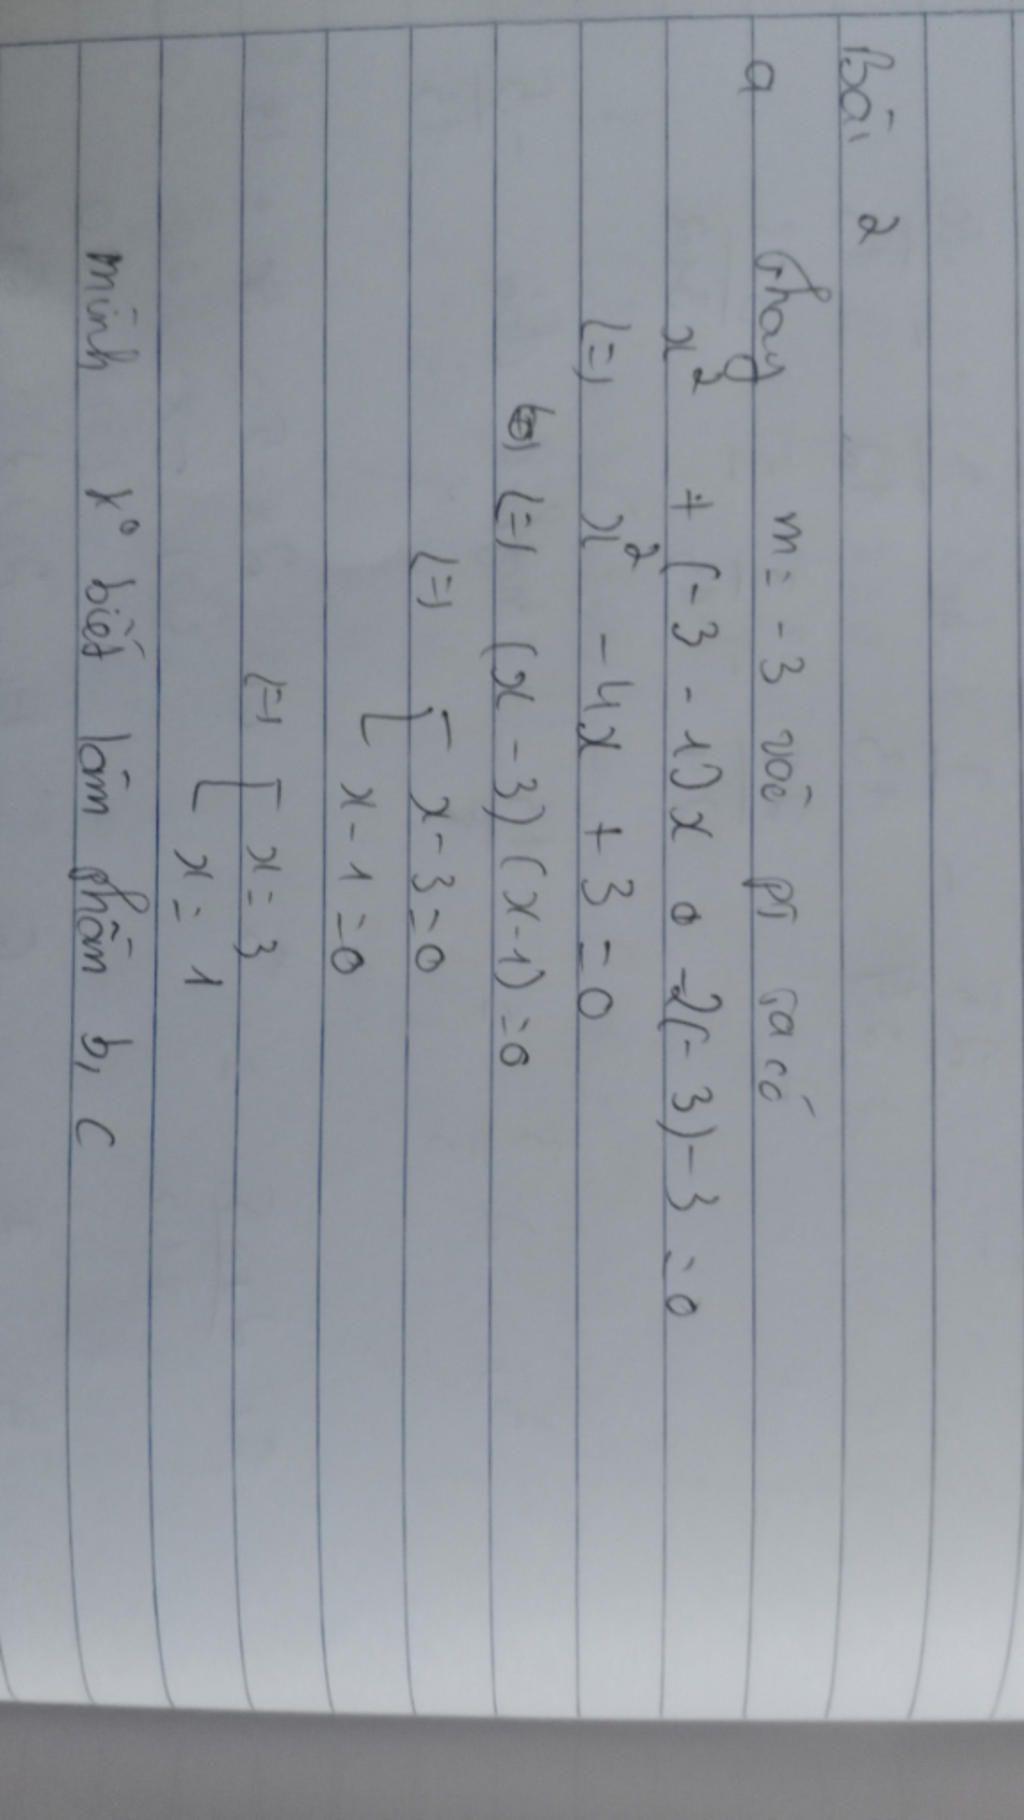 Bài 2
a Thay m = -3 vào pt ta có
x² + (-3 - 1)x -2(-3) - 3 = 0
(=) x² - 4x + 3 = 0
(=) (x - 3)(x - 1) = 0
(=) [ x - 3 = 0
x - 1 = 0
(=) [ x = 3
x = 1
mình k° biết làm phần b, c